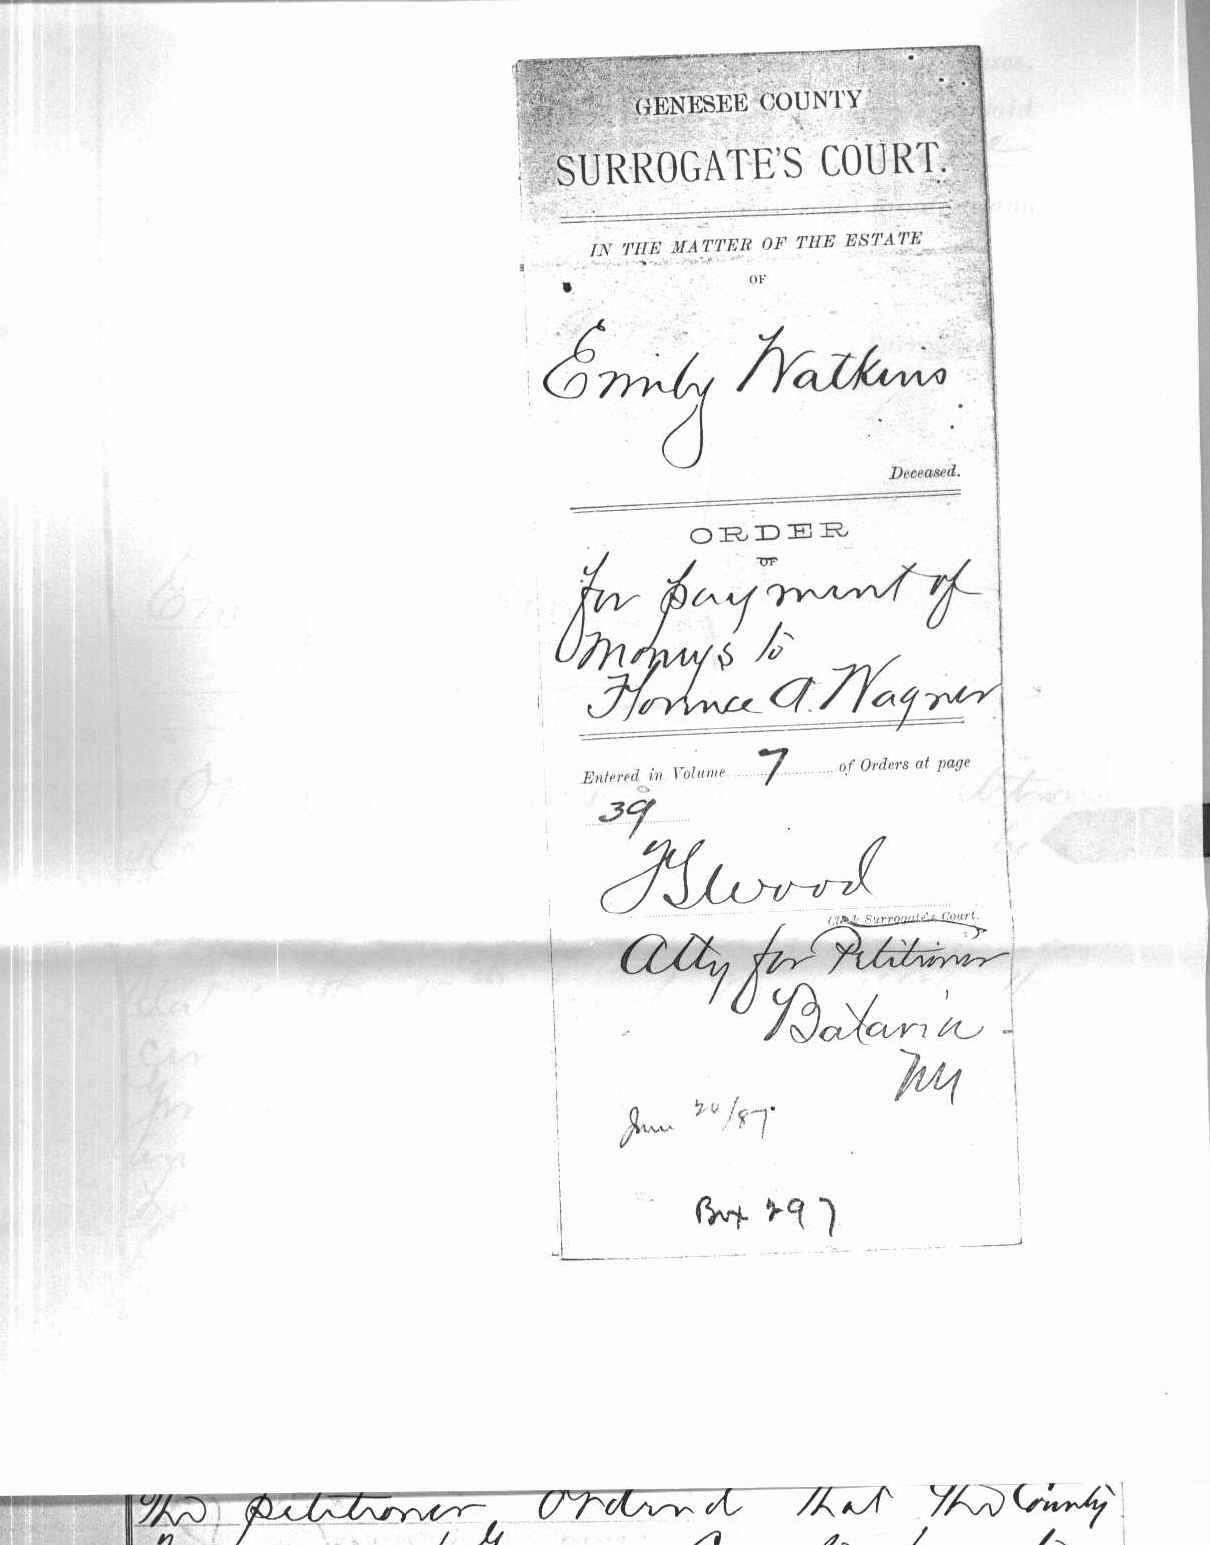 GENESEE COUNTY
SURROGATE'S COURT.
IN THE MATTER OF THE ESTATE
OF
Emily Watkins
Deceased.
ORDER
OF
for payment of
moneys to
Florence A. Wagner
Entered in Volume 7 of Orders at page
39
Wood
Clerk Surrogate's Court.
Atty for Petitioner
Batavia
NY
June 20/87.
Box 297
The petitioner Ordered that the County